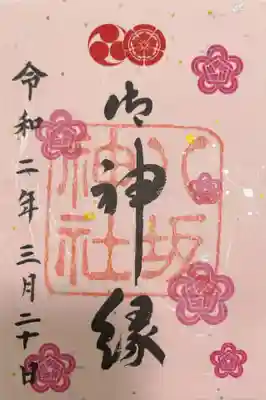 御神縁
八坂神社
令和二年三月二十日